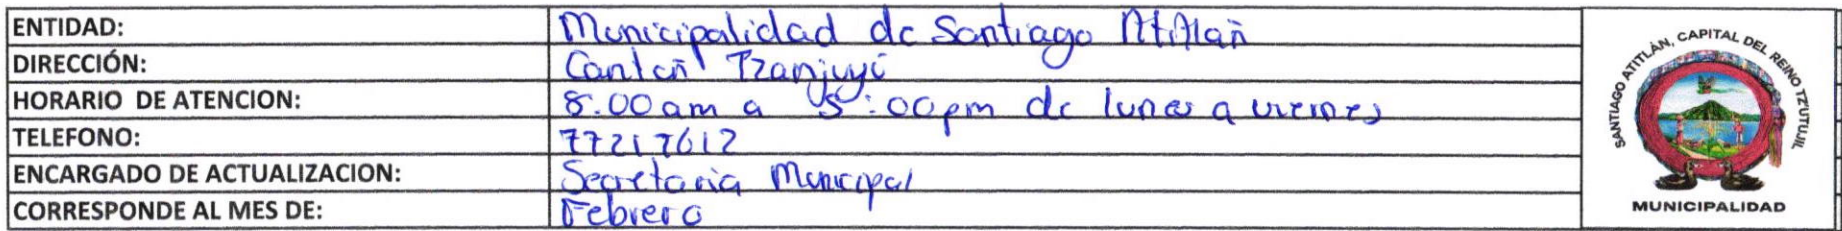 ENTIDAD: Municipalidad de Santiago Atitlań
DIRECCIÓN: Cantoń Tzanjuyú
HORARIO DE ATENCION: 8:00 am a 5:00 pm de lunes a viernes
TELEFONO: 77217612
ENCARGADO DE ACTUALIZACION: Secretaria Municipal
CORRESPONDE AL MES DE: Febrero
SANTIAGO ATITLÁN, CAPITAL DEL REINO TZ'UTUJIL
MUNICIPALIDAD